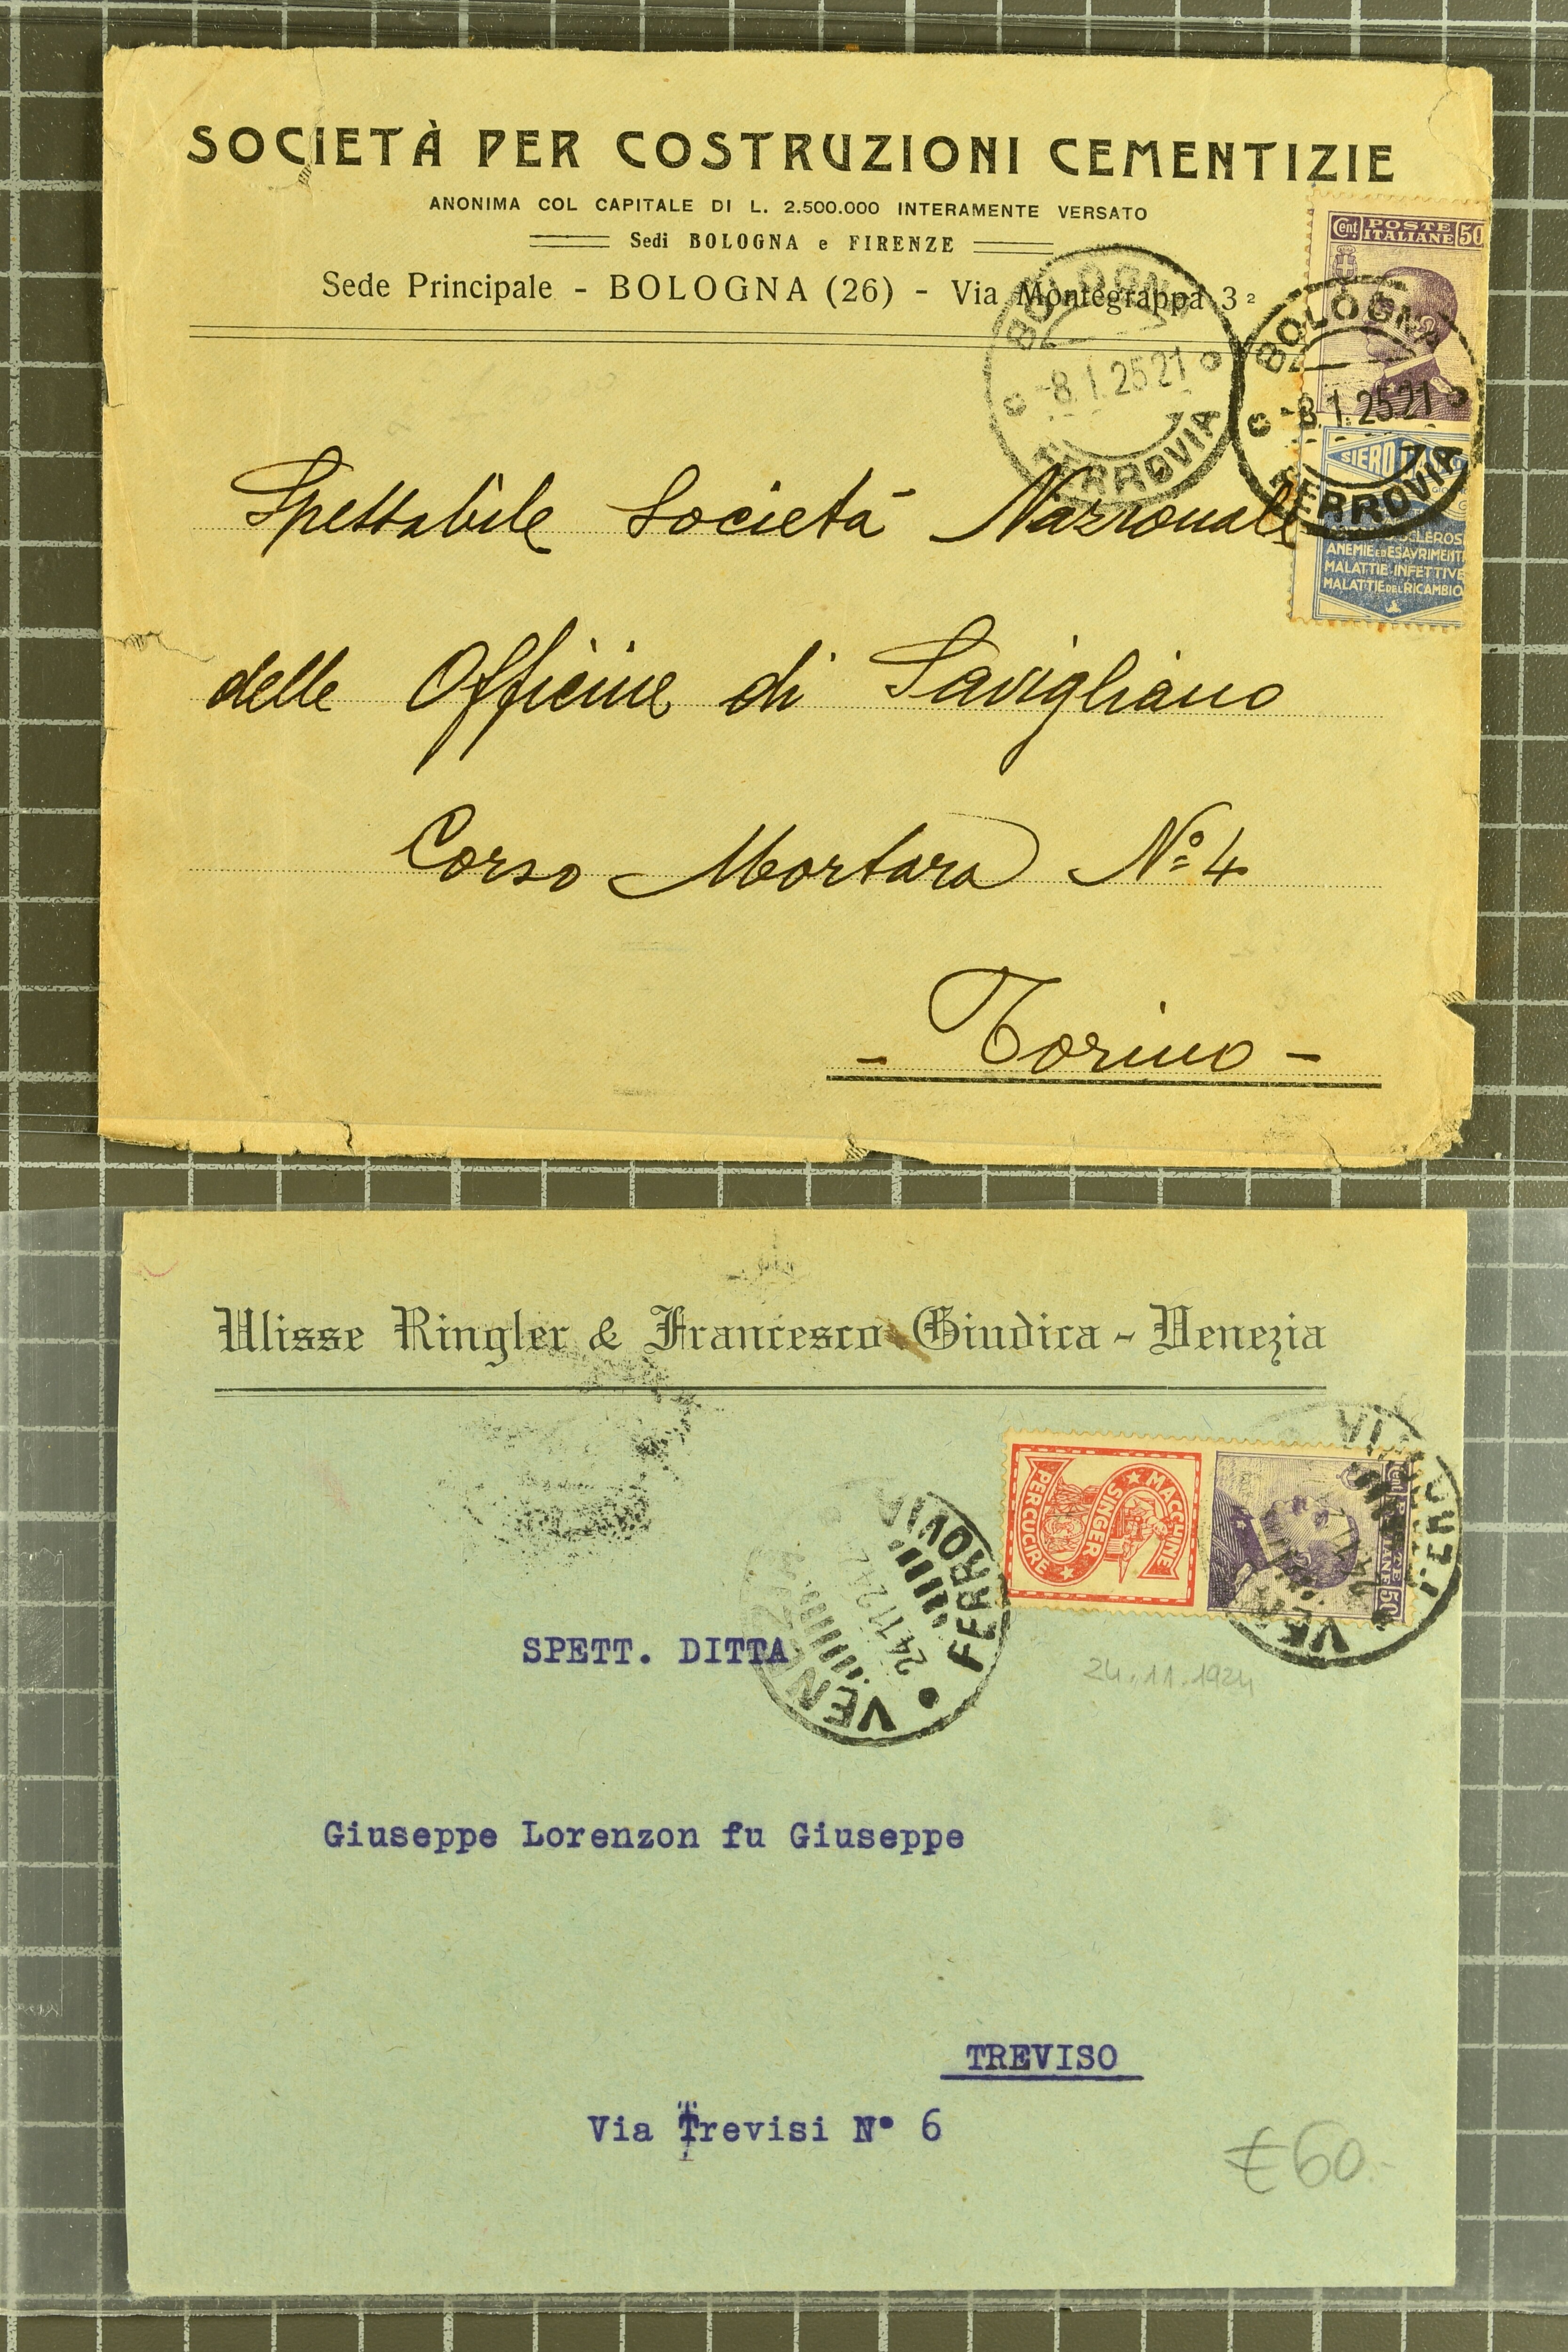 SOCIETÀ PER COSTRUZIONI CEMENTIZIE
ANONIMA COL CAPITALE DI L. 2.500.000 INTERAMENTE VERSATO
Sedi BOLOGNA e FIRENZE
Sede Principale - BOLOGNA (26) - Via Montegrappa 3²
Cent POSTE ITALIANE 50
BOLOGNA
-8.1.25 21
FERROVIA
BOLOGNA
-8.1.25 21
FERROVIA
SIERO
ANEMIE ED ESAURIMENTI
MALATTIE INFETTIVE
MALATTIE DEL RICAMBIO
Spettabile Società Nazionale
delle Officine di Savigliano
Corso Mortara Nº 4
- Torino -
Ulisse Ringler & Francesco Giudica - Venezia
MACCHINE
SINGER
PER CUCIRE
50
FERROVIA
24.11.24
VEN
SPETT. DITTA
24.11.1924
Giuseppe Lorenzon fu Giuseppe
TREVISO
Via Trevisi N° 6
€60.-